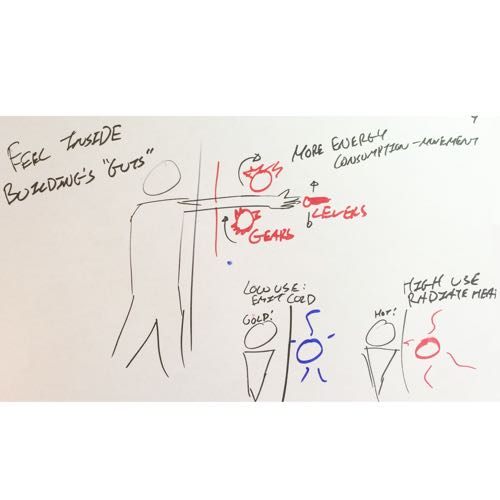 FEEL INSIDE
BUILDING'S "GUTS"
MORE ENERGY
CONSUMPTION - MOVEMENT
LEVERS
GEARS
LOW USE:
EMIT COLD
COLD!
HIGH USE
RADIATE HEA
HOT!